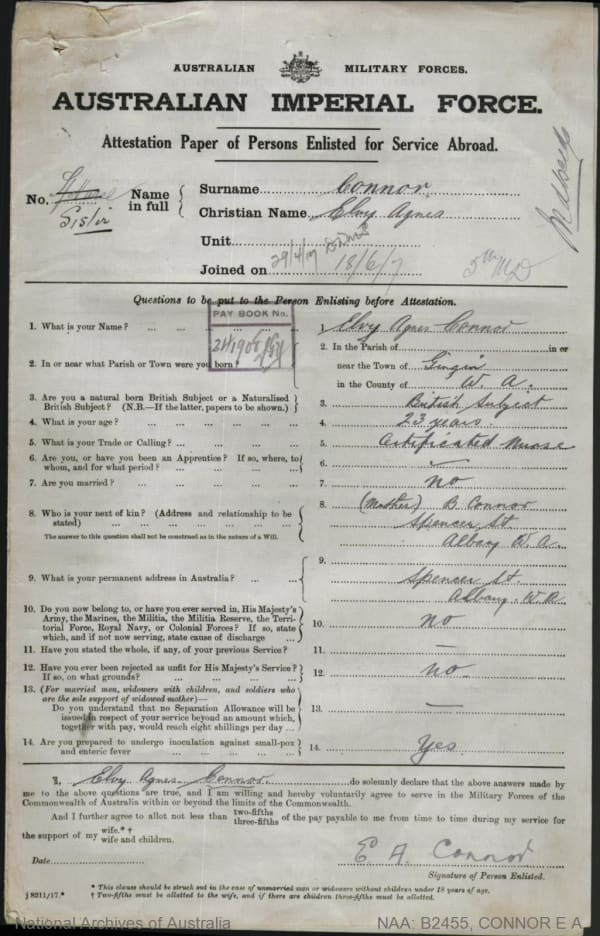 AUSTRALIAN MILITARY FORCES.
AUSTRALIAN IMPERIAL FORCE.
Attestation Paper of Persons Enlisted for Service Abroad.
No. Sister Name in full
Surname Connor.
Christian Name Elvy Agnes
Unit
Joined on 29/4/17 18/6/17
5th MD
Questions to be put to the Person Enlisting before Attestation.
PAY BOOK No.
1. What is your Name? ... Elvy Agnes Connor
2. In or near what Parish or Town were you born?
2. In the Parish of in or
near the Town of Gingin
in the County of W A.
3. Are you a natural born British Subject or a Naturalised
British Subject? (N.B.—If the latter, papers to be shown.)
3. British Subject
4. What is your age? ... 4. 23 years.
5. What is your Trade or Calling? ... 5. Certificated Nurse
6. Are you, or have you been an Apprentice? If so, where, to
whom, and for what period? ... 6. —
7. Are you married? ... 7. no
8. Who is your next of kin? (Address and relationship to be
stated) ...
The answer to this question shall not be construed as in the nature of a Will.
8. (Mother) B Connor
Spencer St
Albany W.A.
9. What is your permanent address in Australia? ...
9. Spencer St.
Albany. W.A
10. Do you now belong to, or have you ever served in, His Majesty's
Army, the Marines, the Militia, the Militia Reserve, the Terri-
torial Force, Royal Navy, or Colonial Forces? If so, state
which, and if not now serving, state cause of discharge ...
10. no
11. Have you stated the whole, if any, of your previous Service? 11. —
12. Have you ever been rejected as unfit for His Majesty's Service?
If so, on what grounds? ... 12. no
13. (For married men, widowers with children, and soldiers who
are the sole support of widowed mother)—
Do you understand that no Separation Allowance will be
issued in respect of your service beyond an amount which,
together with pay, would reach eight shillings per day ...
13. —
14. Are you prepared to undergo inoculation against small-pox
and enteric fever ... 14. Yes
I, Elvy Agnes Connor do solemnly declare that the above answers made by
me to the above questions are true, and I am willing and hereby voluntarily agree to serve in the Military Forces of the
Commonwealth of Australia within or beyond the limits of the Commonwealth.
And I further agree to allot not less than two-fifths three-fifths of the pay payable to me from time to time during my service for
the support of my wife.*† wife and children.
Date E A Connor
Signature of Person Enlisted.
* This clause should be struck out in the case of unmarried men or widowers without children under 18 years of age.
j 8211/17.* † Two-fifths must be allotted to the wife, and if there are children three-fifths must be allotted.
National Archives of Australia NAA: B2455, CONNOR E A